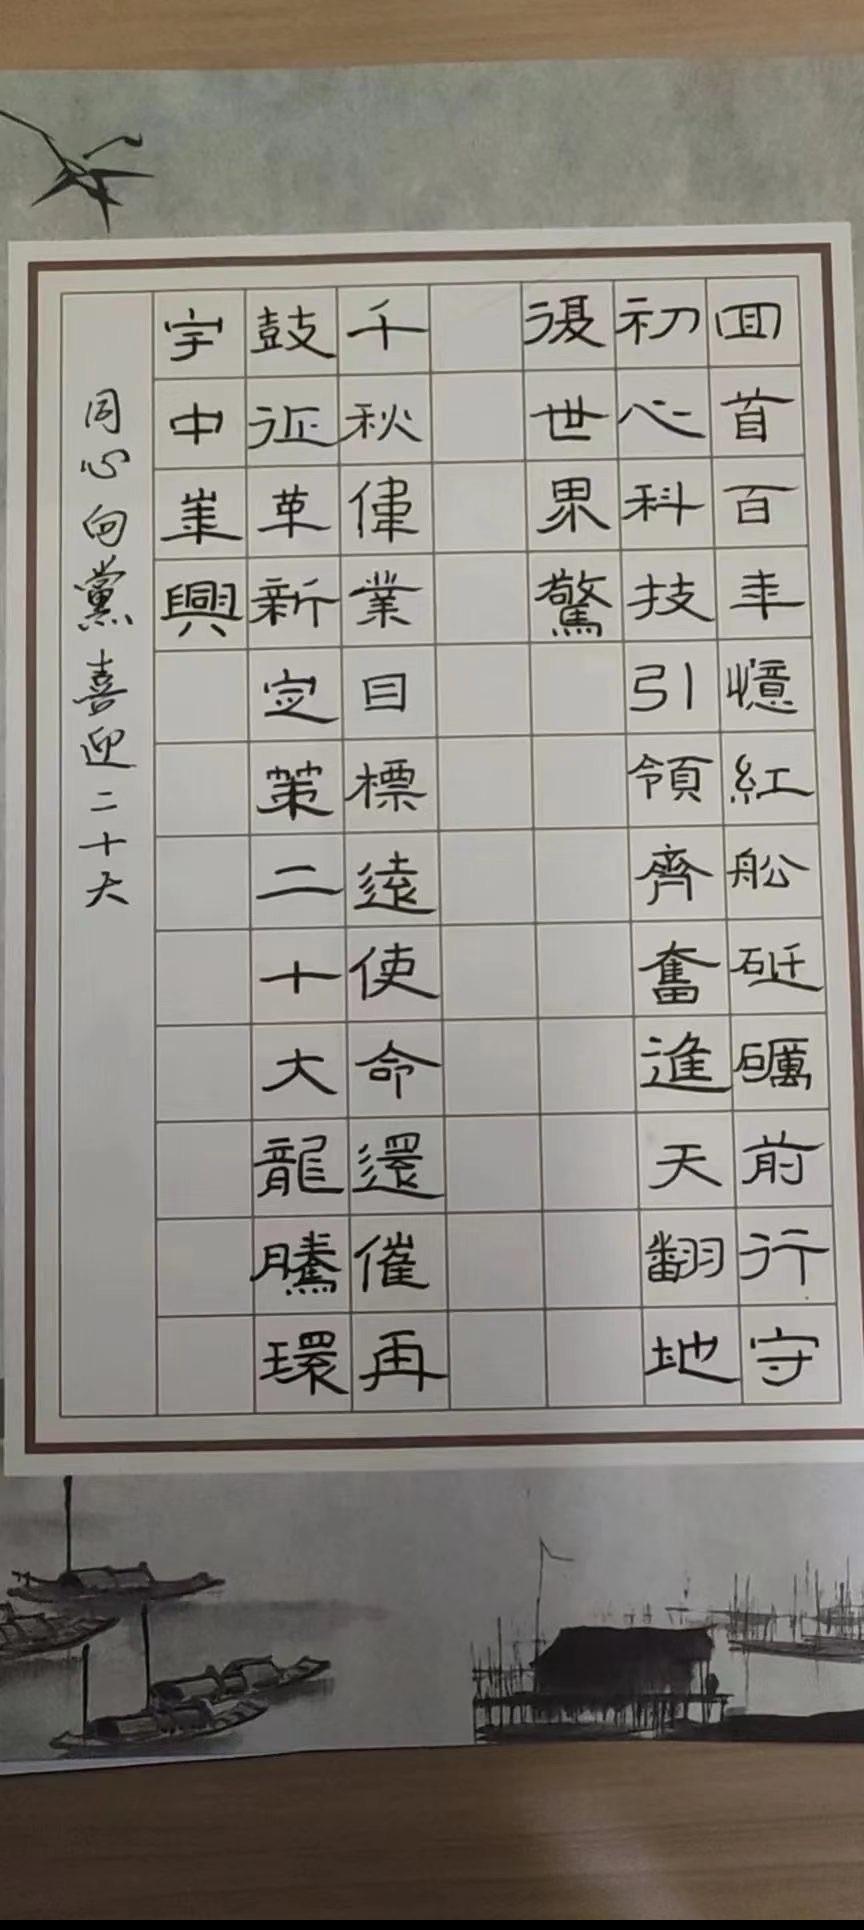 回首百年憶紅舩砥礪前行守
初心科技引領齊奮進天翻地
復世界驚
千秋偉業目標遠使命還催再
鼓征革新定策二十大龍騰環
宇中華興
同心向黨喜迎二十大